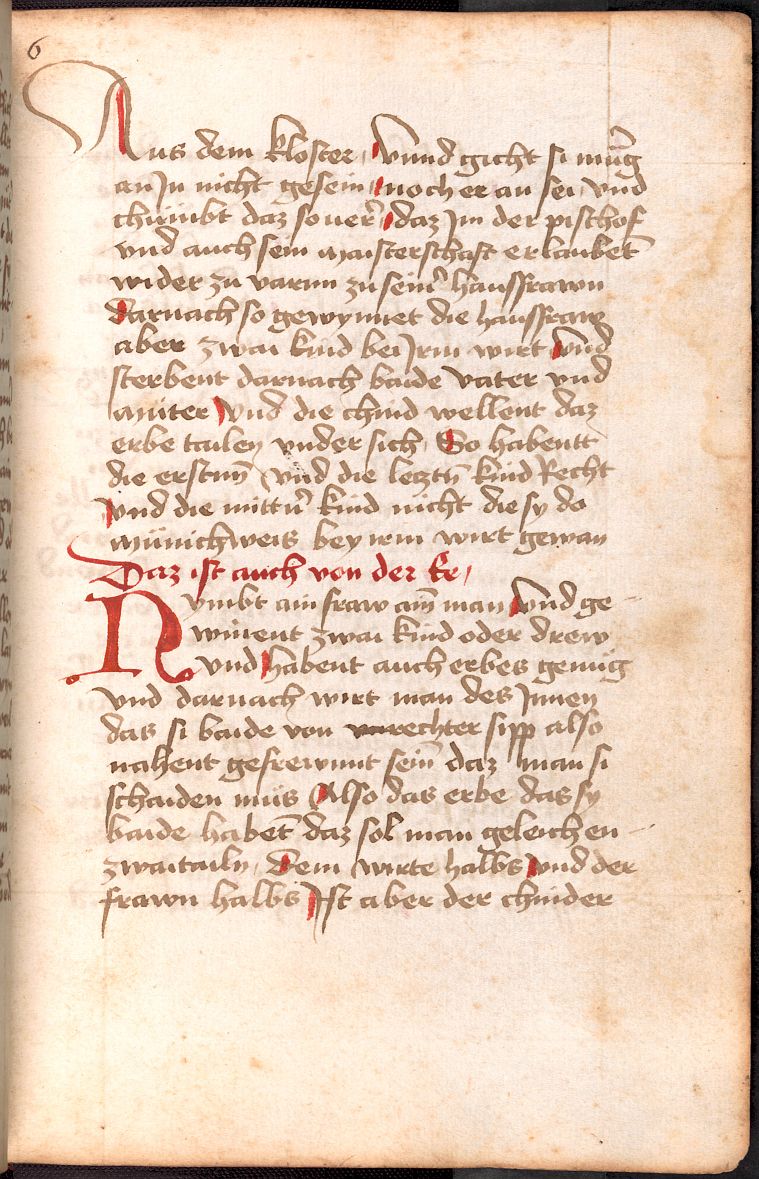 6
Aus dem kloster, Vnnd gicht si müg
an Jn nicht gesein, noch er an sei, vnd
chümbt daz so uer̄, daz Jm der pischof
vnd auch sein maisterschaft erlaubet̄
wider zu varnn zu sein̄ haussfrawn
Darnach so gewynnet die haussfraw
aber zwai kind bei Jrm wirt vnd
sterbent darnach baide vater vnd
müter Vnd die chind wellent daz
erbe tailen vnder sich, So habentt
die erstnn̄ vnd die lecztn̄ kind Recht
vnd die mittn̄ kind nicht die sy do
münichweis bey irm wirt gewan
Daz ist auch von der Ee,
Nymbt ain fraw ain̄ man Vnd ge-
winent zwai kind oder drew
vnd habent auch erbes genüg
vnd darnach wirt man des Jnnen
das si baide von rechter sipp also
nahent gefrewnnt sein̄ daz man si
schaiden müs Also das erbe das sy
baide habet̄ daz sol man geleich en-
zwaitailn, Dem wirte halbs vnd der
frawn halbs Ist aber der chinder